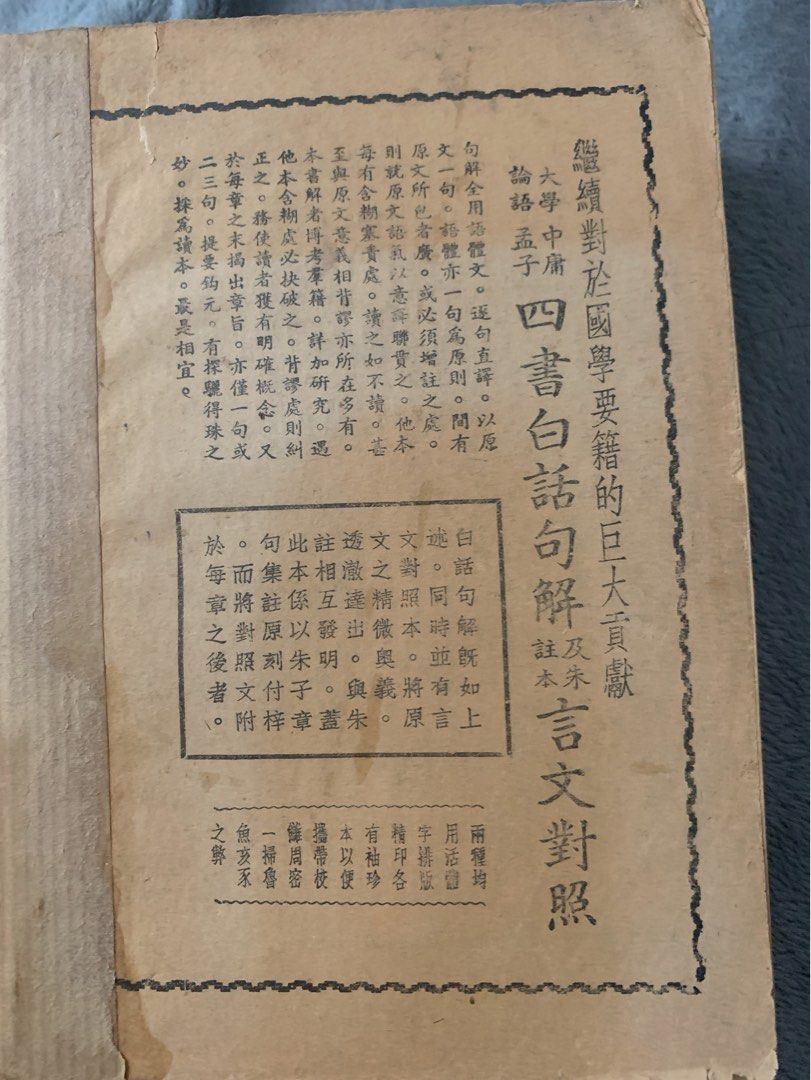 繼續對於國學要籍的巨大貢獻
大學 中庸
論語 孟子
四書白話句解
及朱
註本
言文對照
句解全用語體文。逐句直譯。以原
文一句。語體亦一句為原則。間有
原文所包者廣。或必須增註之處。
則就原文語氣以意譯聯貫之。他本
每有含糊塞責處。讀之如不讀。甚
至與原文意義相背謬亦所在多有。
本書解者博考羣籍。詳加研究。遇
他本含糊處必抉破之。背謬處則糾
正之。務使讀者獲有明確概念。又
於每章之末揭出章旨。亦僅一句或
二三句。提要鈎元。有探驪得珠之
妙。採為讀本。最是相宜。
白話句解旣如上
述。同時並有言
文對照本。將原
文之精微奧義。
透澈達出。與朱
註相互發明。蓋
此本係以朱子章
句集註原刻付梓
。而將對照文附
於每章之後者。
兩種均
用活體
字排版
精印各
有袖珍
本以便
攜帶校
讎周密
一掃魯
魚亥豕
之弊